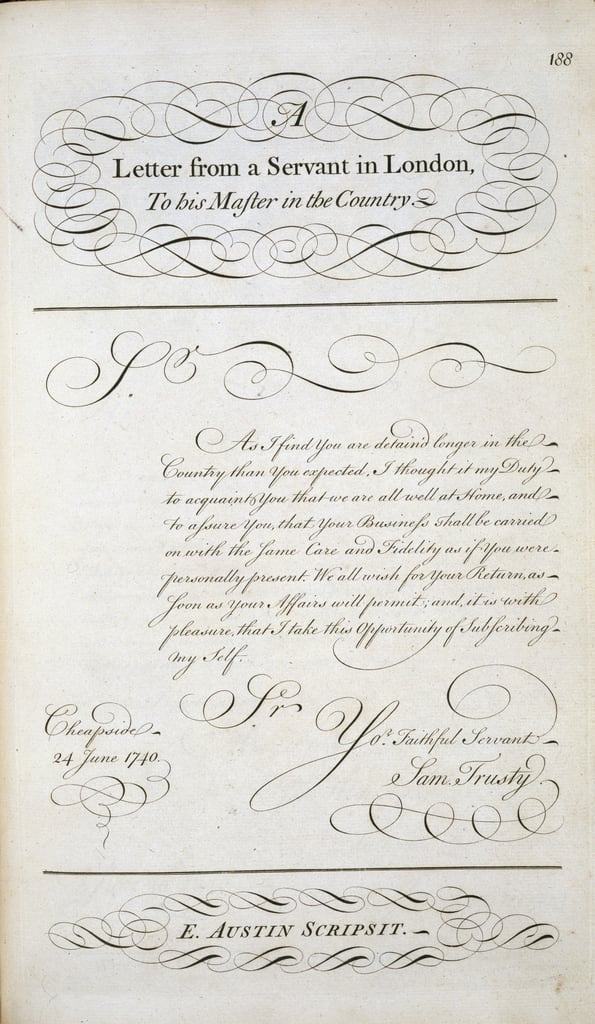 188
A
Letter from a Servant in London,
To his Maſter in the Country.
Sr
As I find You are detain'd longer in the
Country than You expected, I thought it my Duty
to acquaint You that we are all well at Home, and
to aſsure You, that Your Buſineſs shall be carried
on with the ſame Care and Fidelity as if You were
perſonally preſent. We all wish for Your Return, as
ſoon as Your Affairs will permit; and, it is with
pleaſure, that I take this Opportunity of Subſcribing
my Self.
Sr
Cheapside
24 June 1740.
Yor. Faithful Servant
Sam. Trusty.
E. AUSTIN SCRIPSIT.